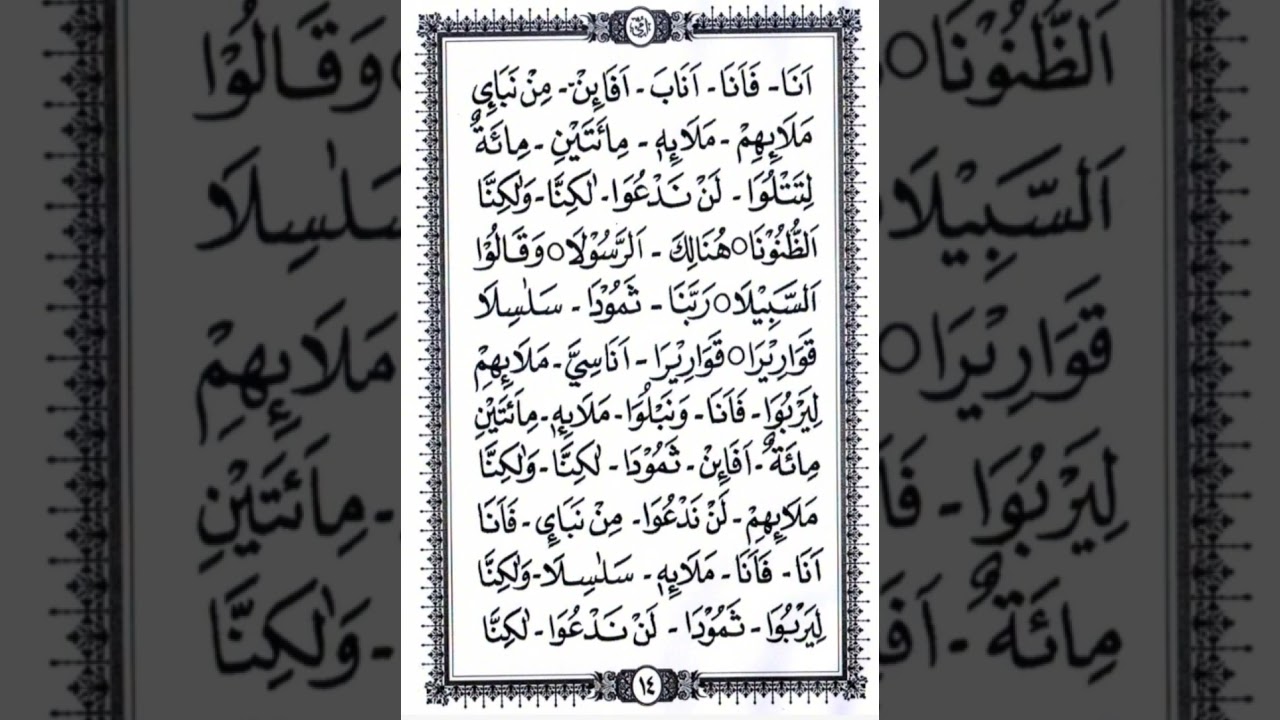 اَنَا - فَاَنَا - اَنَابَ - اَفَائِنْ - مِنْ نَبَاِیِٕ
مَلَا۟ىِٕهِمْ - مَلَا۟ىِٕهٖ - مِائَتَيْنِ - مِائَةٌ
لِتَتْلُوَا - لَنْ نَدْعُوَا - لٰكِنَّا - وَلٰكِنَّا
اَلظُّنُوْنَا ○ هُنَالِكَ - اَلرَّسُوْلَا ○ وَقَالُوْا
اَلسَّبِيْلَا ○ رَبَّنَا - ثَمُوْدَا - سَلٰسِلَا
قَوَارِيْرَا ○ قَوَارِيْرَا - اَنَاسِيَّ - مَلَا۟ىِٕهِمْ
لِيَرْبُوَا - فَاَنَا - وَنَبْلُوَا - مَلَا۟ىِٕهٖ - مِائَتَيْنِ
مِائَةٌ - اَفَائِنْ - ثَمُوْدَا - لٰكِنَّا - وَلٰكِنَّا
مَلَا۟ىِٕهِمْ - لَنْ نَدْعُوَا - مِنْ نَبَاِیِٕ - فَاَنَا
اَنَا - فَاَنَا - مَلَا۟ىِٕهٖ - سَلٰسِلَا - وَلٰكِنَّا
لِيَرْبُوَا - ثَمُوْدَا - لَنْ نَدْعُوَا - لٰكِنَّا
١٤